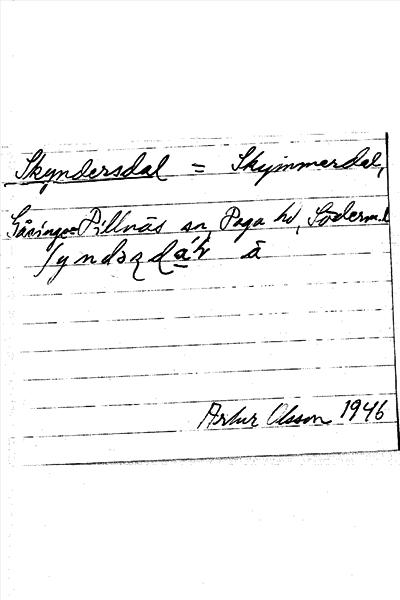 Skyndersdal = Skymmerdal,
Gåsinge-Dillnäs sn, Daga hd, Söderm.l
ʃyndəʒdá·ɫ à
Artur Olsson 1946